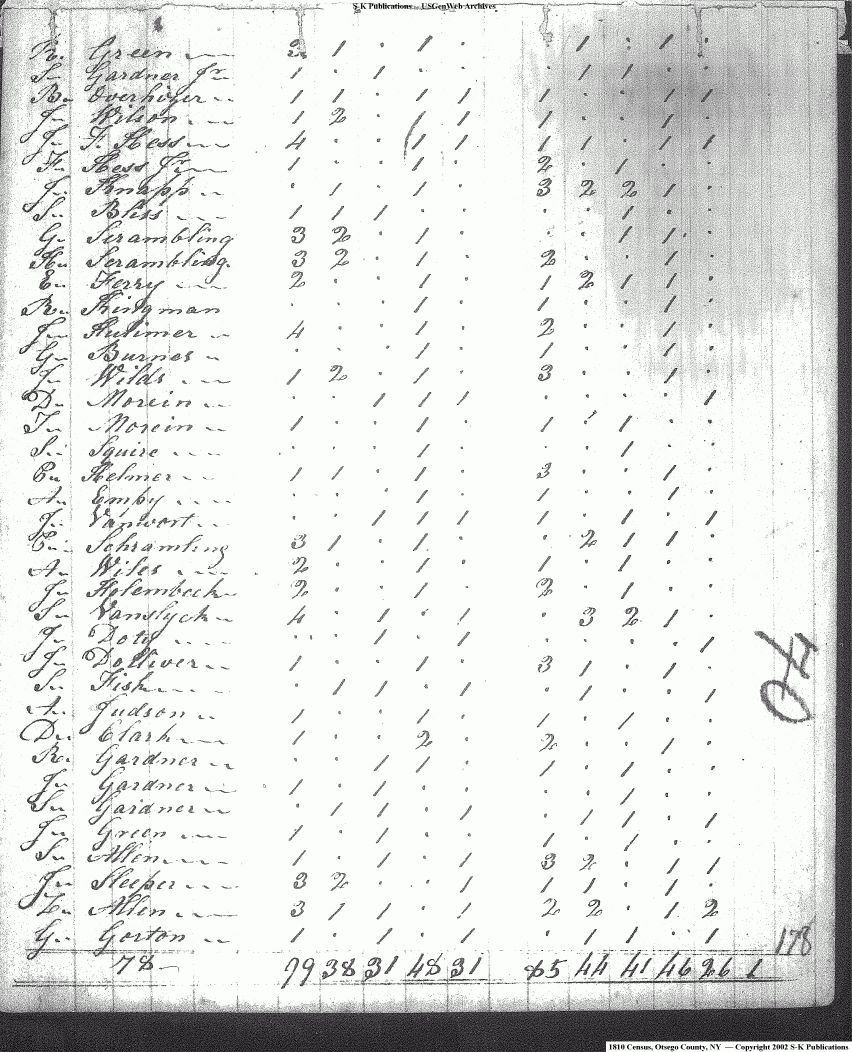 S-K Publications - USGenWeb Archives
R. Green 2 1 . 1 . . 1 . 1 .
S. Gardner Jr 1 . 1 . . . 1 1 . .
B. Overhizer 1 1 . 1 1 1 . . 1 1
J. Wilson 1 2 . 1 1 1 . . 1 .
J. F. Hess 4 . . 1 1 1 1 . 1 1
F. Hess Jr 1 . . 1 . 2 . 1 . .
J. Knapp . 1 . 1 . 3 2 2 1 .
S. Bliss 1 1 1 . . . . 1 . .
G. Scrambling 3 2 . 1 . . . 1 1 .
H. Scrambling 3 2 . 1 . 2 . . 1 .
E. Ferry 2 . . 1 . 1 2 1 1 .
R. Kingman . . . 1 . 1 . . 1 .
4 . . 1 . 2 . . 1 .
G. Burnes . . . 1 . 1 . . 1 .
J. Wilds 1 2 . 1 . 3 . . 1 .
D. Morein . . 1 1 1 . . . . 1
J. Morein 1 . . 1 . 1 1 1 . .
S. Squire . . . 1 . . . 1 . .
Helmer 1 1 . 1 . 3 . . 1 .
A. Emby . . . 1 . 1 . . 1 .
J. Vanwort . . 1 1 1 1 . 1 . 1
Schramling 3 1 . 1 . . 2 1 1 .
A. Wiles 2 . . 1 . 1 . 1 . .
J. Holembeck 2 . . 1 . 2 . 1 . .
S. Vanslyck 4 . 1 . 1 . 3 2 1 .
J. Doty . . 1 . 1 . . . . 1
J. Dolliver 1 . . 1 . 3 1 . 1 .
S. Fish . 1 1 . 1 . 1 . . 1
A. Judson 1 . . 1 . 1 . 1 . .
D. Clark 1 . . 2 . 2 . . 1 .
R. Gardner . . 1 1 . 1 . 1 . .
J. Gardner 1 . 1 . . . . 1 . .
S. Gardner . 1 1 . 1 . 1 1 . 1
J. Green 1 . 1 . . 1 . 1 . .
S. Allen 1 . 1 . 1 3 2 . 1 1
J. Sleeper 3 2 . . 1 1 1 . 1 .
Z. Allen 3 1 1 . 1 2 2 . 1 2
G. Gorton 1 . 1 . 1 . 1 1 . 1
78 79 38 31 48 31 85 44 41 46 26 1
40
178
1810 Census, Otsego County, NY — Copyright 2002 S-K Publications